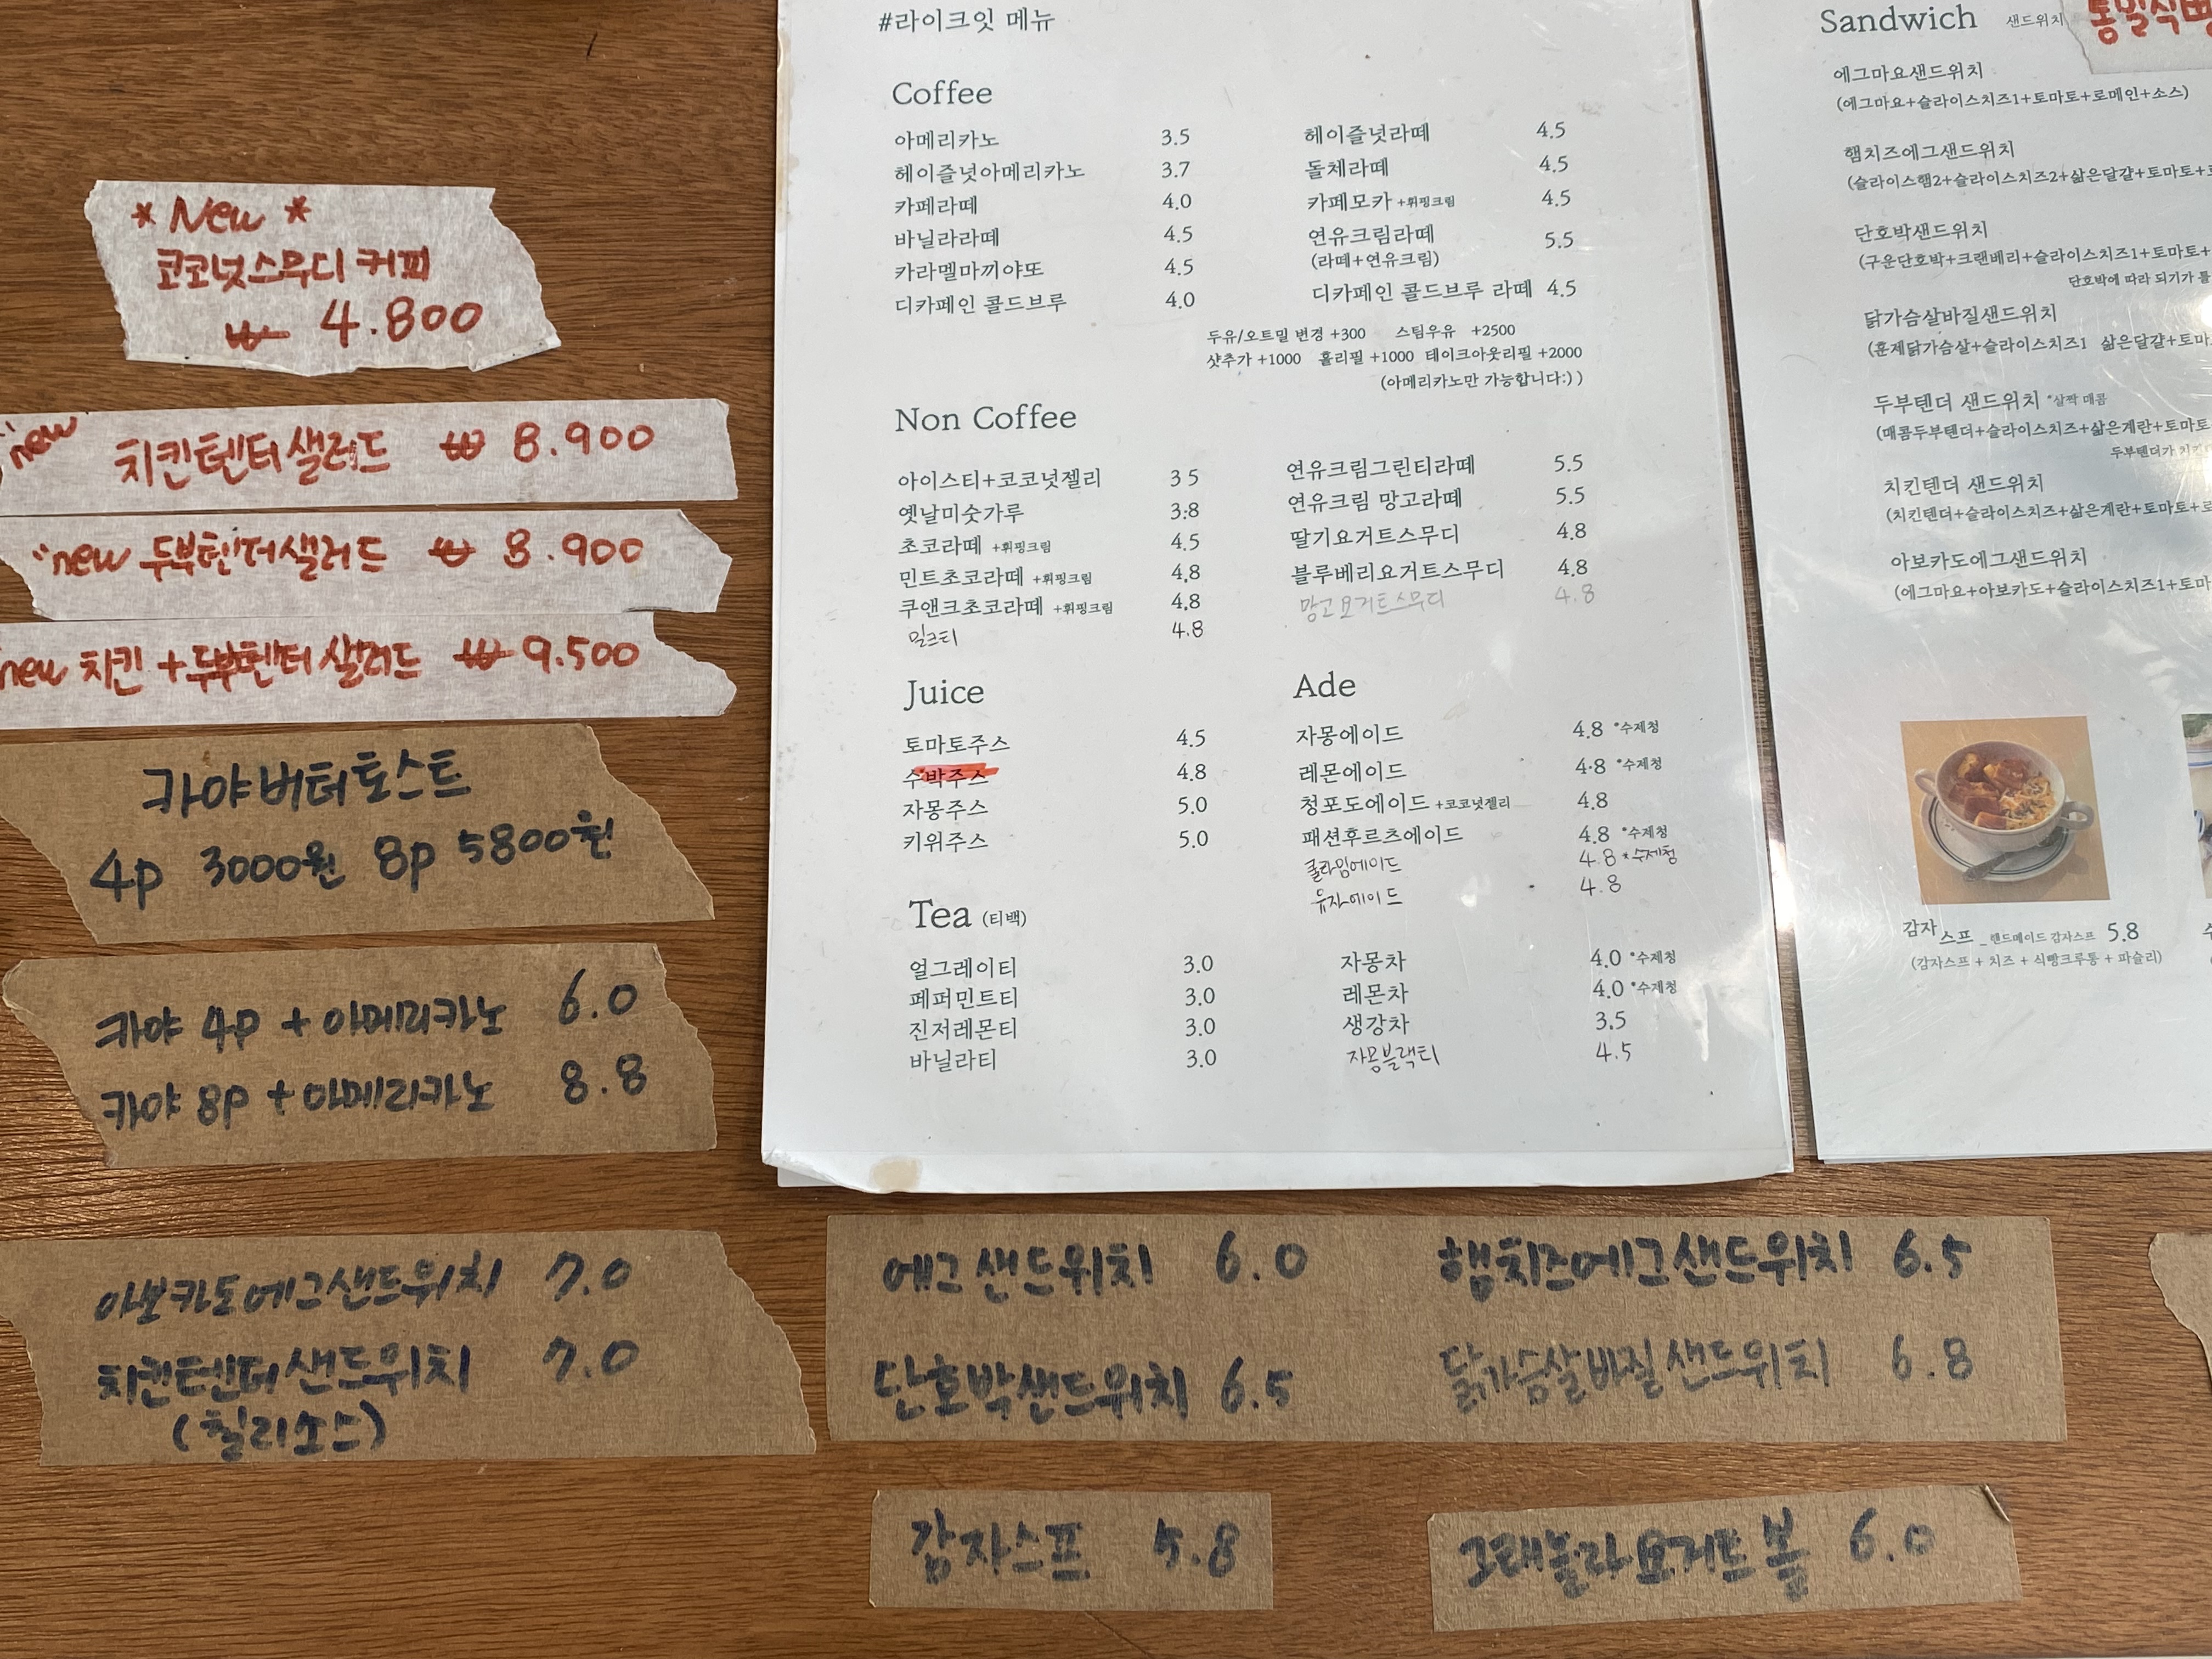 * New *
코코넛스무디 커피
₩ 4.800
"new 치킨텐더샐러드 ₩ 8.900
"new 두부텐더샐러드 ₩ 8.900
new 치킨+두부텐더샐러드 ₩ 9.500
카야버터토스트
4p 3000원 8p 5800원
카야 4p + 아메리카노 6.0
카야 8p + 아메리카노 8.8
아보카도에그샌드위치 7.0
치킨텐더샌드위치 7.0
(칠리소스)
#라이크잇 메뉴
Coffee
아메리카노 3.5
헤이즐넛아메리카노 3.7
카페라떼 4.0
바닐라라떼 4.5
카라멜마끼야또 4.5
디카페인 콜드브루 4.0
헤이즐넛라떼 4.5
돌체라떼 4.5
카페모카 +휘핑크림 4.5
연유크림라떼 5.5
(라떼+연유크림)
디카페인 콜드브루 라떼 4.5
두유/오트밀 변경 +300 스팀우유 +2500
샷추가 +1000 홀리필 +1000 테이크아웃리필 +2000
(아메리카노만 가능합니다:))
Non Coffee
아이스티+코코넛젤리 3 5
옛날미숫가루 3.8
초코라떼 +휘핑크림 4.5
민트초코라떼 +휘핑크림 4.8
쿠앤크초코라떼 +휘핑크림 4.8
밀크티 4.8
연유크림그린티라떼 5.5
연유크림 망고라떼 5.5
딸기요거트스무디 4.8
블루베리요거트스무디 4.8
망고요거트스무디 4.8
Juice
토마토주스 4.5
수박주스 4.8
자몽주스 5.0
키위주스 5.0
Ade
자몽에이드 4.8 *수제청
레몬에이드 4.8 *수제청
청포도에이드 +코코넛젤리 4.8
패션후르츠에이드 4.8 *수제청
쿨라임에이드 4.8 *수제청
유자에이드 4.8
Tea (티백)
얼그레이티 3.0
페퍼민트티 3.0
진저레몬티 3.0
바닐라티 3.0
자몽차 4.0 *수제청
레몬차 4.0 *수제청
생강차 3.5
자몽블랙티 4.5
Sandwich 샌드위치 통밀식빵
에그마요샌드위치
(에그마요+슬라이스치즈1+토마토+로메인+소스)
햄치즈에그샌드위치
(슬라이스햄2+슬라이스치즈2+삶은달걀+토마토+
단호박샌드위치
(구운단호박+크랜베리+슬라이스치즈1+토마토+
단호박에 따라 되기가 틀
닭가슴살바질샌드위치
(훈제닭가슴살+슬라이스치즈1 삶은달걀+토마
두부텐더 샌드위치 *살짝 매콤
(매콤두부텐더+슬라이스치즈+삶은계란+토마토
두부텐더가
치킨텐더 샌드위치
(치킨텐더+슬라이스치즈+삶은계란+토마토+
아보카도에그샌드위치
(에그마요+아보카도+슬라이스치즈1+토마
감자스프 _핸드메이드 감자스프 5.8
(감자스프 + 치즈 + 식빵크루통 + 파슬리)
에그샌드위치 6.0 햄치즈에그샌드위치 6.5
단호박샌드위치 6.5 닭가슴살바질샌드위치 6.8
감자스프 5.8
그래놀라요거트볼 6.0